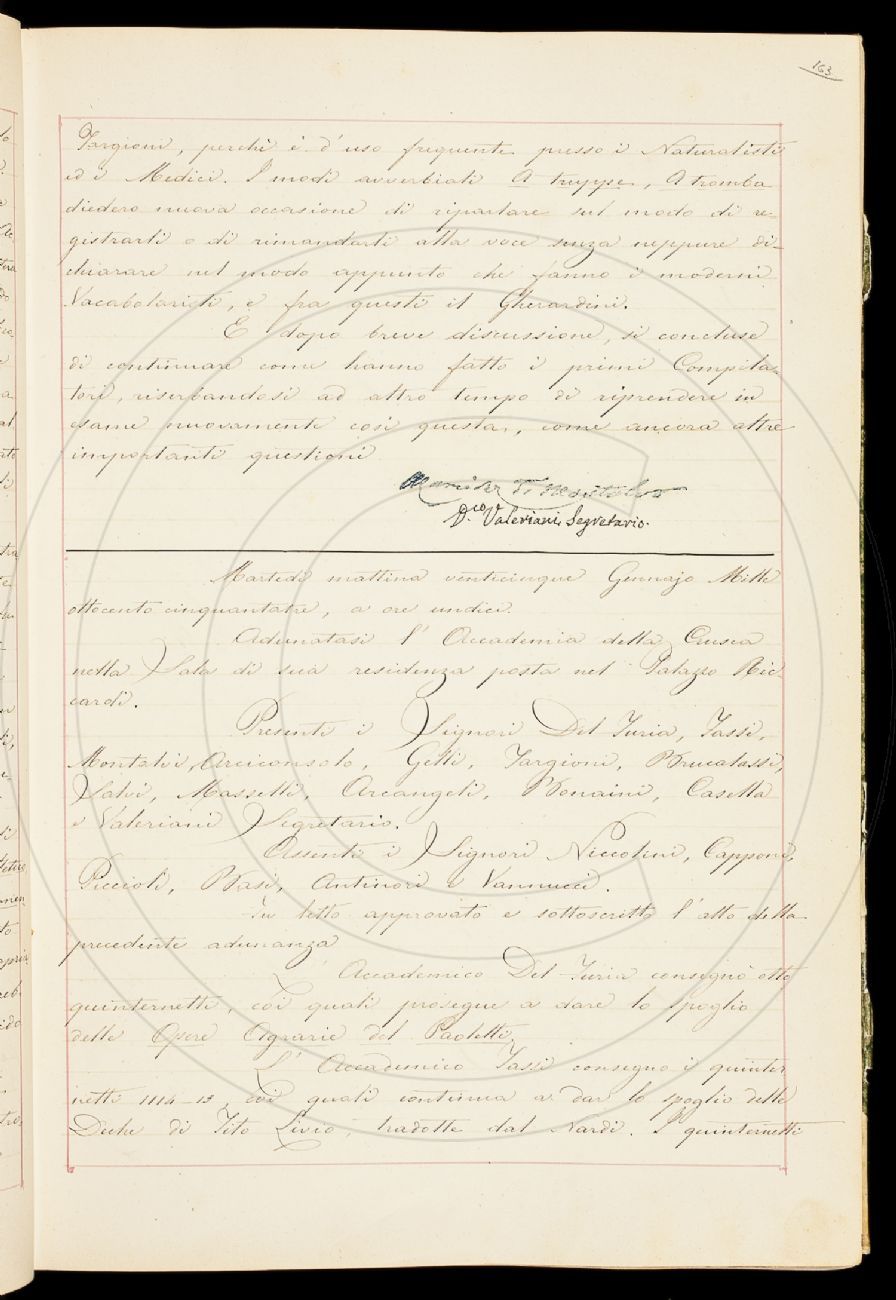 163
Targioni, perchè è d'uso frequente presso i Naturalisti
ed i Medici. I modi avverbiali A truppe, A tromba
diedero nuova occasione di riparlare sul modo di re-
gistrarli o di rimandarli alla voce senza neppure di-
chiarare nel modo appunto che fanno i moderni
Vocabolaristi, e fra questi il Gherardini.
E dopo breve discussione, si concluse
di continuare come hanno fatto i primi Compila-
tori, riserbandosi ad altro tempo di riprendere in
esame nuovamente così questa, come ancora altre
importanti questioni
D.co Valeriani, Segretario.
Martedì mattina venticinque Gennajo Mille
ottocento cinquantatre, a ore undici.
Adunatasi l'Accademia della Crusca
nella Sala di sua residenza posta nel Palazzo Ric-
cardi.
Presenti i Signori Del Furia, Tassi,
Montalvi, Arciconsolo, Gelli, Targioni, Brucalassi,
Salvi, Masselli, Arcangeli, Bonaini, Casella
e Valeriani Segretario.
Assenti i Signori Niccolini, Capponi,
Piccioli, Basi, Antinori e Vannucci.
Fu letto approvato e sottoscritto l'atto della
precedente adunanza
L'Accademico Del Furia consegnò otto
quinternetti, coi quali prosegue a dare lo spoglio
delle Opere Agrarie del Paoletti.
L'Accademico Tassi consegnò i quinter
netti 1114-15, coi quali continua a dar lo spoglio delle
Deche di Tito Livio, tradotte dal Nardi. I quinternetti